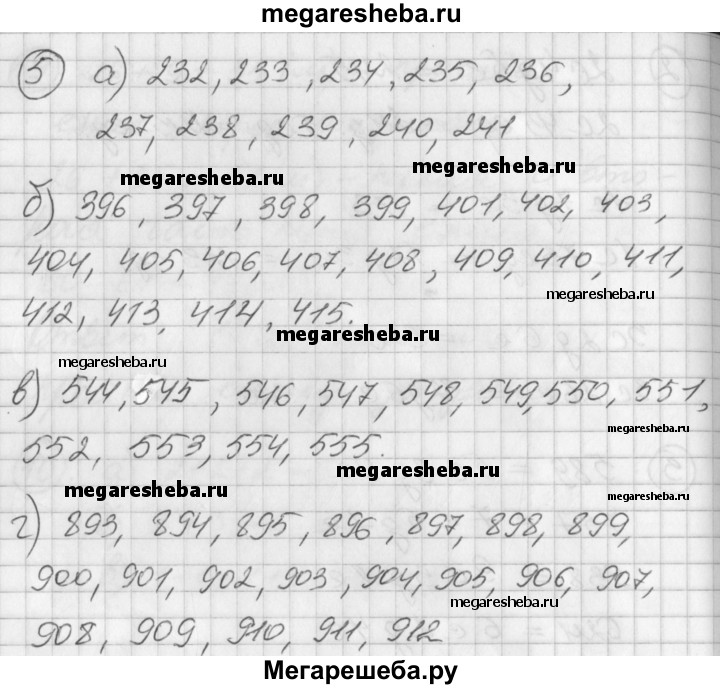 megaresheba.ru
5 а) 232, 233, 234, 235, 236,
237, 238, 239, 240, 241
megaresheba.ru megaresheba.ru
б) 396, 397, 398, 399, 401, 402, 403,
404, 405, 406, 407, 408, 409, 410, 411,
megaresheba.ru
412, 413, 414, 415.
megaresheba.ru
megaresheba.ru
в) 544, 545, 546, 547, 548, 549, 550, 551,
megaresheba.ru
552, 553, 554, 555.
megaresheba.ru
megaresheba.ru megaresheba.ru
г) 893, 894, 895, 896, 897, 898, 899,
900, 901, 902, 903, 904, 905, 906, 907,
megaresheba.ru
908, 909, 910, 911, 912
Мегарешеба.ру